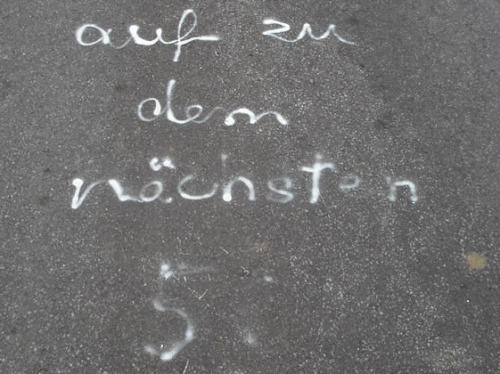 auf zu
dem
nächsten
5